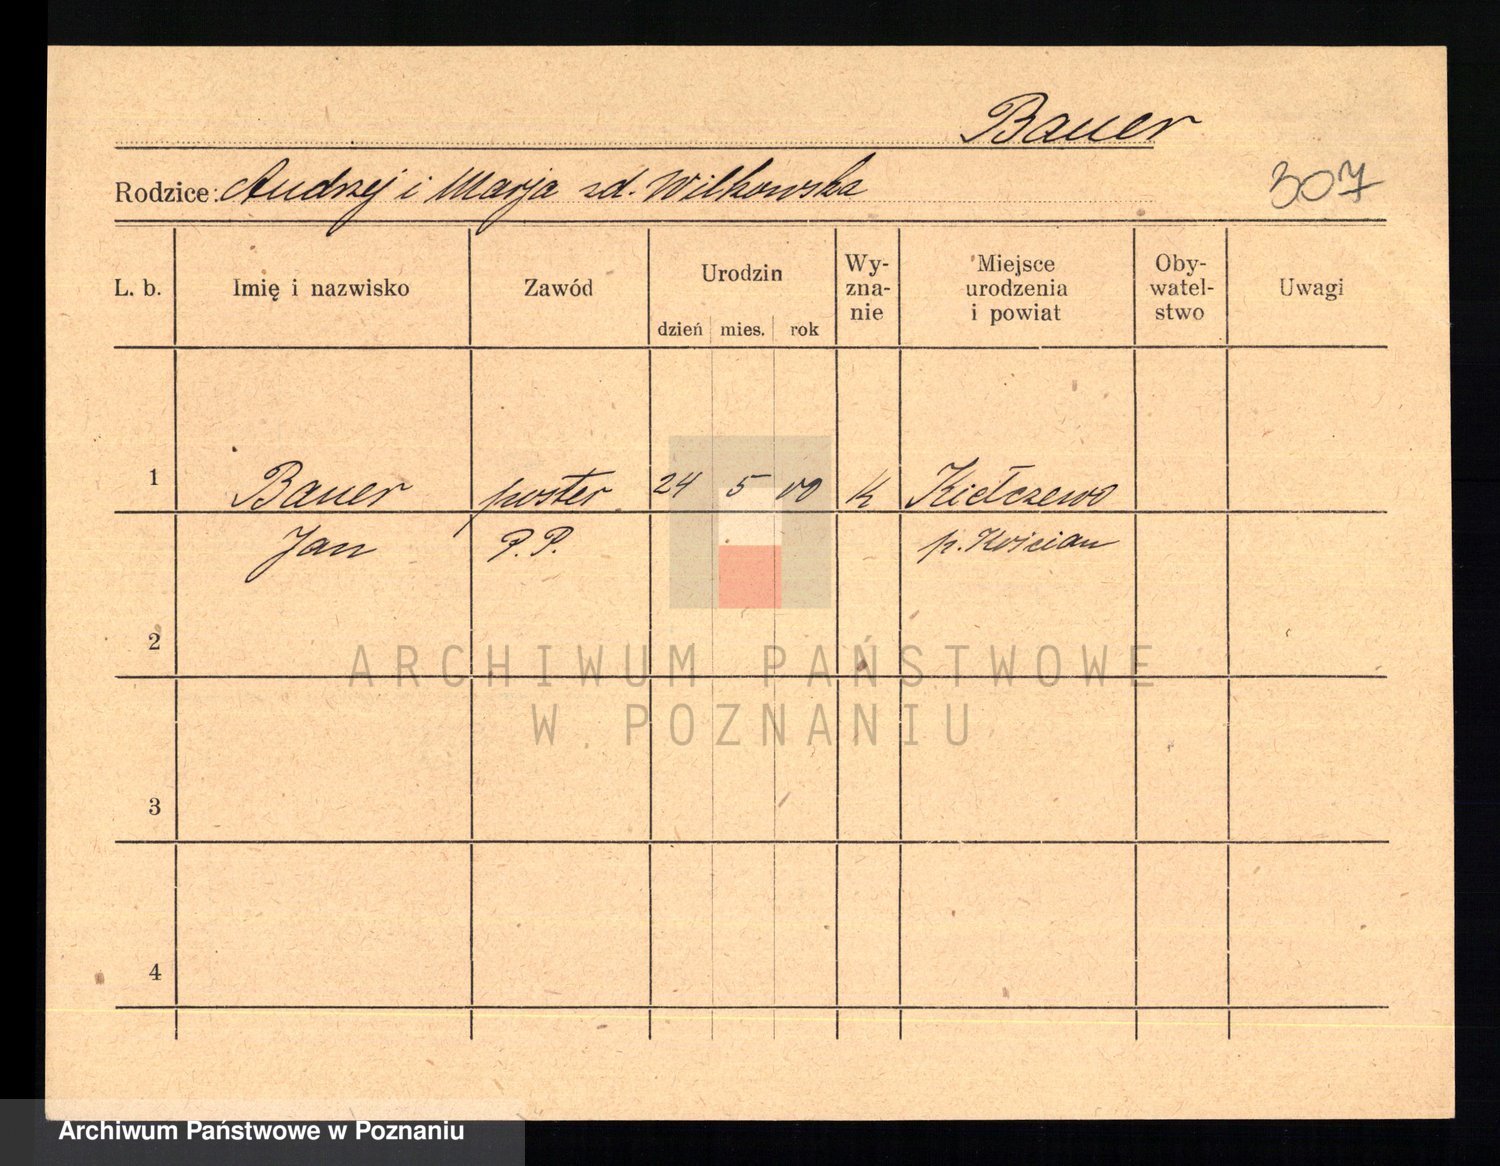 Bauer
Rodzice: Andrzej i Marja zd. Wilkowska
307
L. b. Imię i nazwisko Zawód Urodzin dzień mies. rok Wy-zna-nie Miejsce urodzenia i powiat Oby-watel-stwo Uwagi
1 Bauer poster. 24 5 00 k Kiełczewo
Jan P. P. p. Kościan
2
ARCHIWUM PAŃSTWOWE
W POZNANIU
3
4
Archiwum Państwowe w Poznaniu